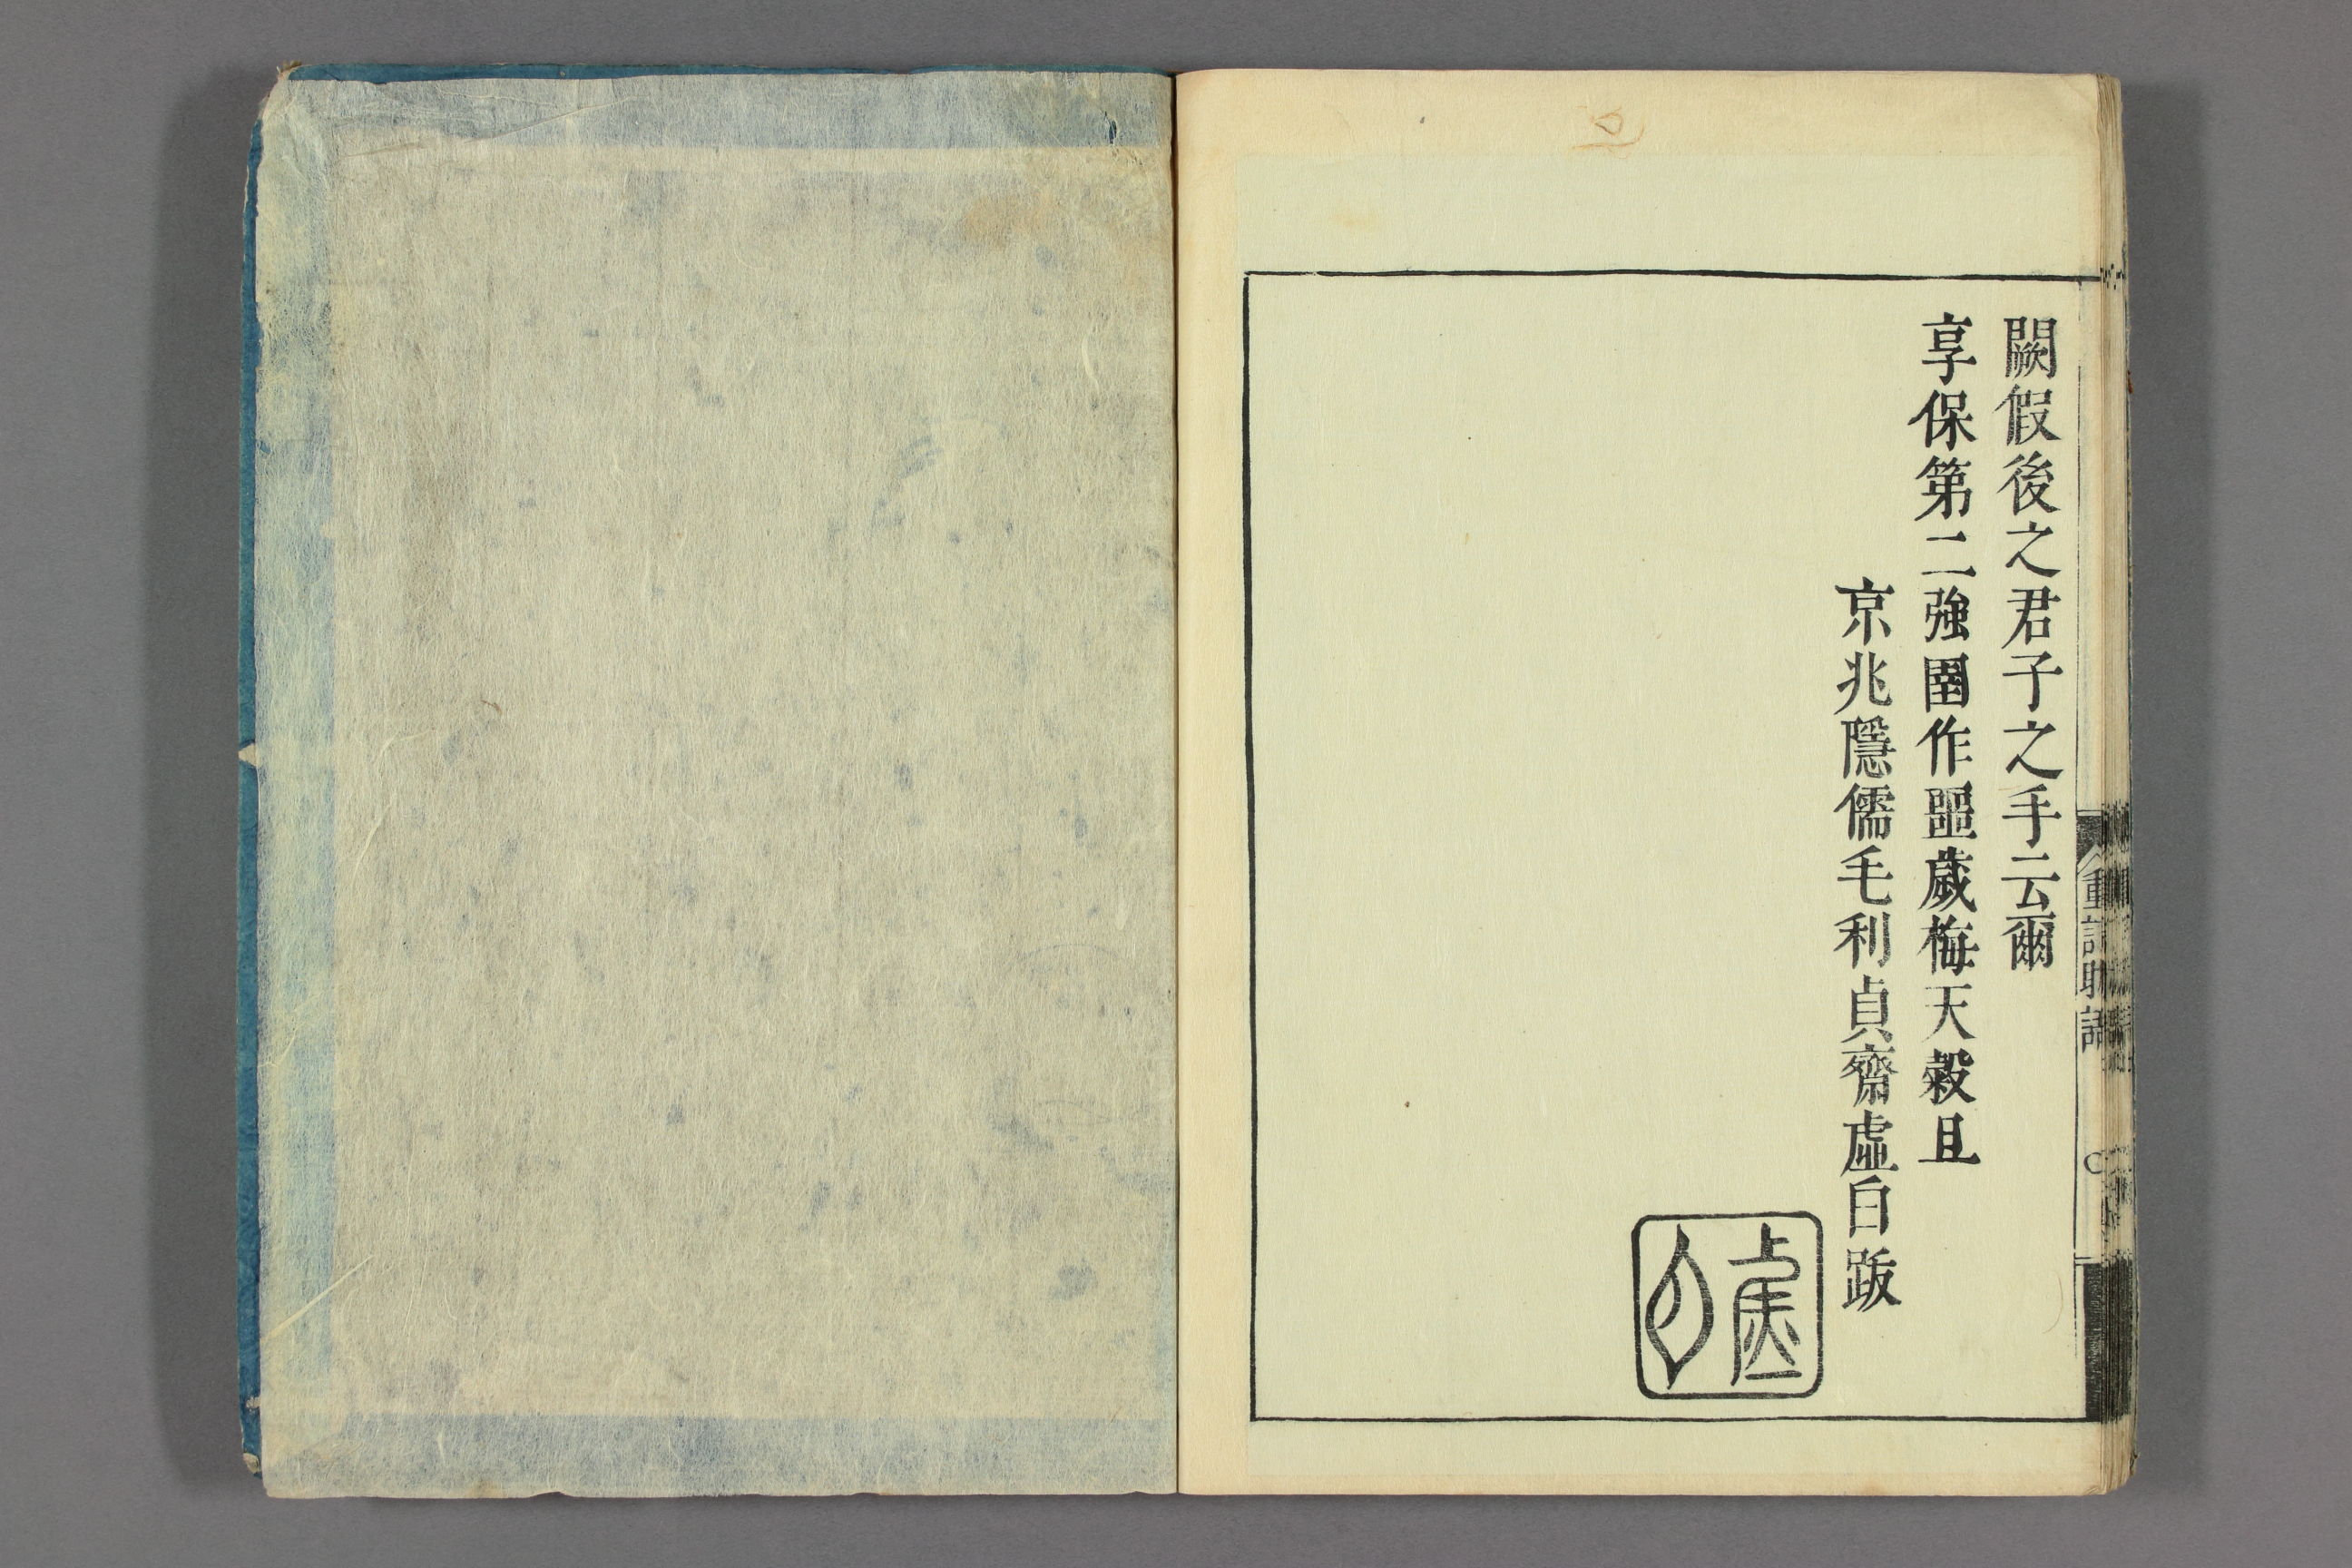 闕假後之君子之手云爾
享保第二強圉作噩歲梅天穀且
京兆隱儒毛利貞齋虛白跋
虛白